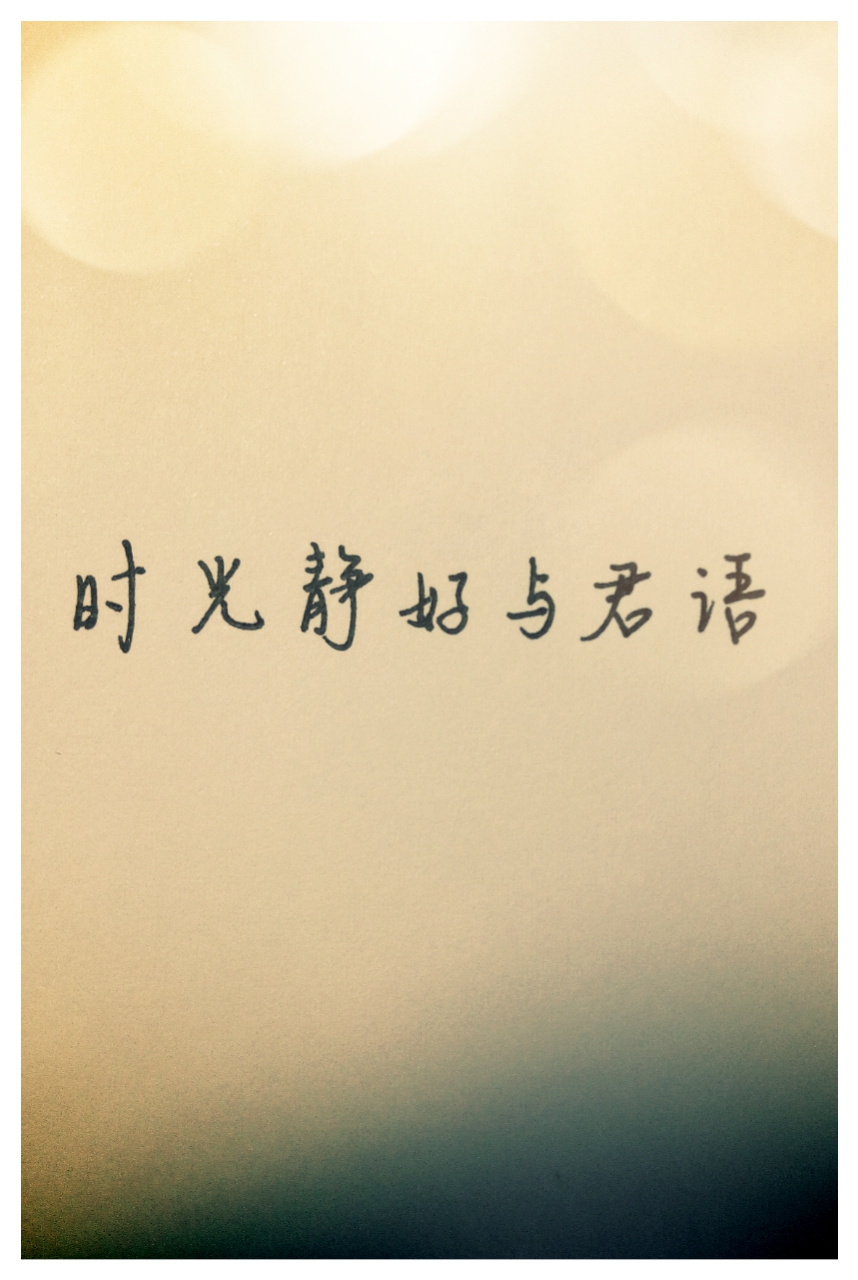 时光静好与君语